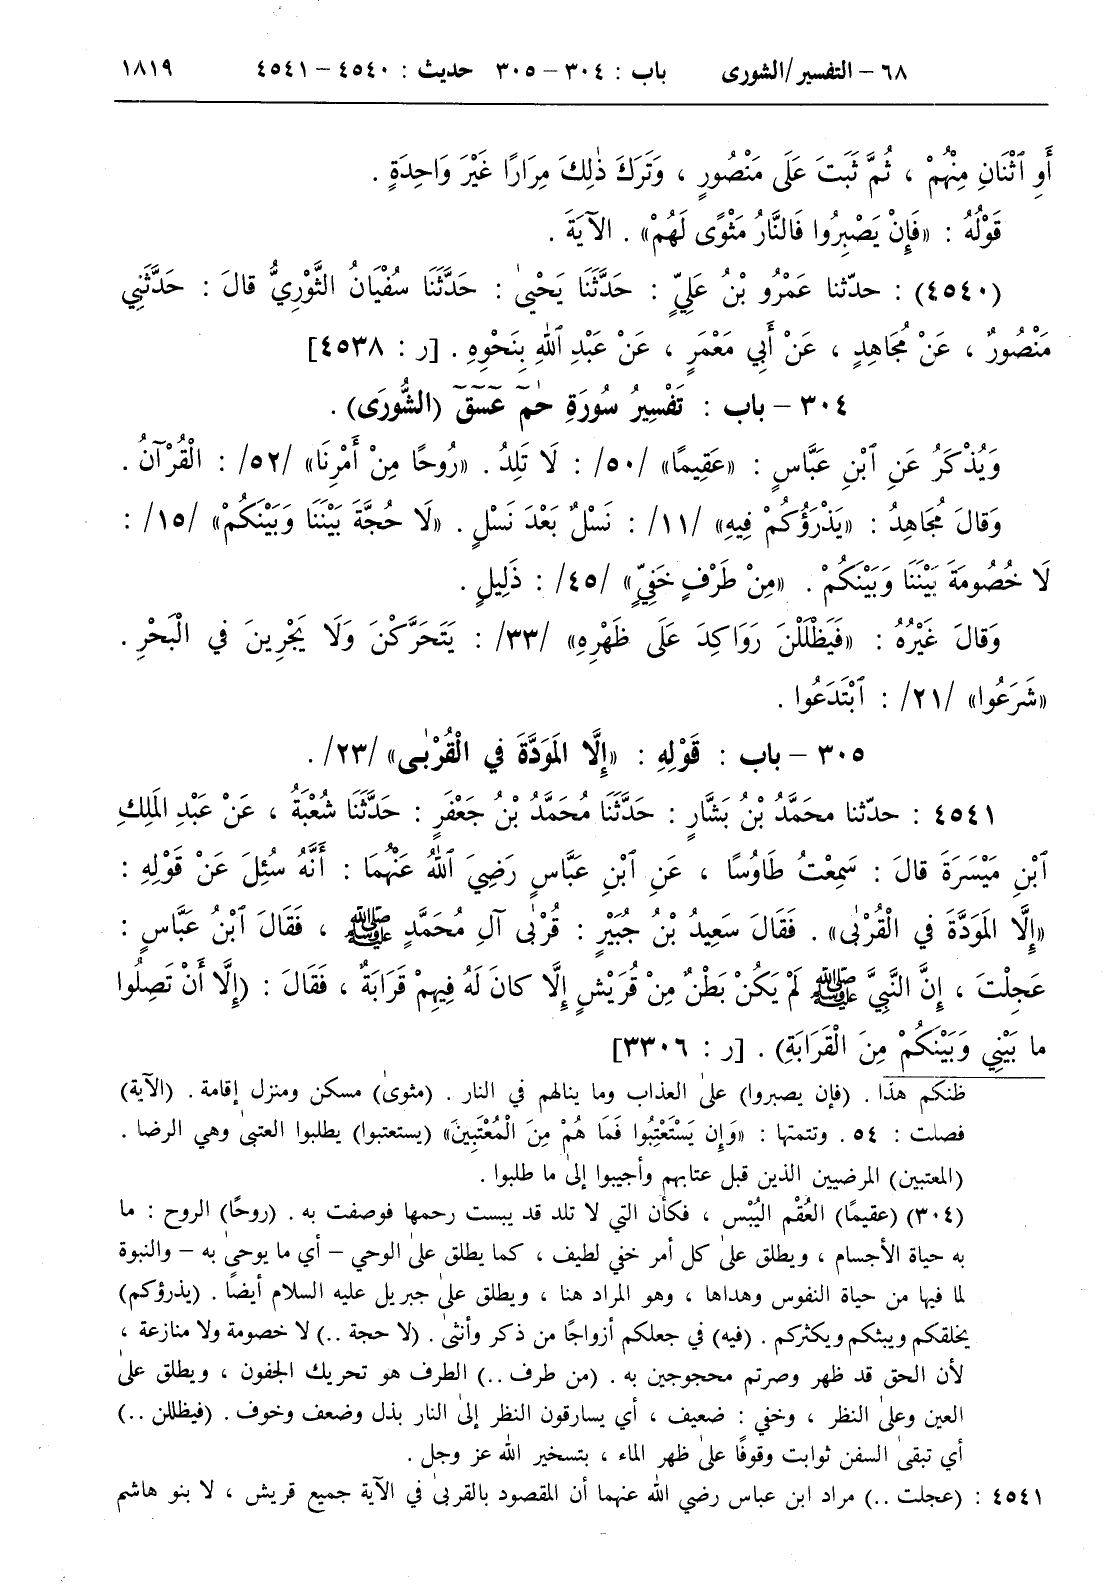 ٦٨ – التفسير/الشورى باب : ٣٠٤ – ٣٠٥ حديث : ٤٥٤٠ – ٤٥٤١ ١٨١٩
أَوِ ٱثْنَانِ مِنْهُمْ ، ثُمَّ ثَبَتَ عَلَى مَنْصُورٍ ، وَتَرَكَ ذٰلِكَ مِرَارًا غَيْرَ وَاحِدَةٍ .
قَوْلُهُ : «فَإِنْ يَصْبِرُوا فَالنَّارُ مَثْوًى لَهُمْ» . الآيَةَ .
(٤٥٤٠) : حدّثنا عَمْرُو بْنُ عَلِيٍّ : حَدَّثَنَا يَحْيىٰ : حَدَّثَنَا سُفْيَانُ الثَّوْرِيُّ قالَ : حَدَّثَنِي
مَنْصُورٌ ، عَنْ مُجَاهِدٍ ، عَنْ أَبِي مَعْمَرٍ ، عَنْ عَبْدِ اللهِ بِنَحْوِهِ . [ر : ٤٥٣٨]
٣٠٤ – باب : تَفْسِيرُ سُورَةِ حٰمٓ عٓسٓقٓ (الشُّورَى) .
وَيُذْكَرُ عَنِ ٱبْنِ عَبَّاسٍ : «عَقِيمًا» /٥٠/ : لَا تَلِدُ . «رُوحًا مِنْ أَمْرِنَا» /٥٢/ : الْقُرْآنُ .
وَقالَ مُجَاهِدٌ : «يَذْرَؤُكُمْ فِيهِ» /١١/ : نَسْلٌ بَعْدَ نَسْلٍ . «لَا حُجَّةَ بَيْنَنَا وَبَيْنَكُمْ» /١٥/ :
لَا خُصُومَةَ بَيْنَنَا وَبَيْنَكُمْ . «مِنْ طَرْفٍ خَفِيٍّ» /٤٥/ : ذَلِيلٍ .
وَقالَ غَيْرُهُ : «فَيَظْلَلْنَ رَوَاكِدَ عَلَى ظَهْرِهِ» /٣٣/ : يَتَحَرَّكْنَ وَلَا يَجْرِينَ في الْبَحْرِ .
«شَرَعُوا» /٢١/ : ٱبْتَدَعُوا .
٣٠٥ – باب : قَوْلِهِ : «إِلَّا المَوَدَّةَ في الْقُرْبٰى» /٢٣/ .
٤٥٤١ : حدّثنا محمَّدُ بْنُ بَشَّارٍ : حَدَّثَنَا مُحَمَّدُ بْنُ جَعْفَرٍ : حَدَّثَنَا شُعْبَةُ ، عَنْ عَبْدِ المَلِكِ
ٱبْنِ مَيْسَرَةَ قالَ : سَمِعْتُ طَاوُسًا ، عَنِ ٱبْنِ عَبَّاسٍ رَضِيَ ٱللهُ عَنْهُمَا : أَنَّهُ سُئِلَ عَنْ قَوْلِهِ :
«إِلَّا المَوَدَّةَ في الْقُرْبٰى» . فَقَالَ سَعِيدُ بْنُ جُبَيْرٍ : قُرْبٰى آلِ مُحَمَّدٍ ﷺ ، فَقَالَ ٱبْنُ عَبَّاسٍ :
عَجِلْتَ ، إِنَّ النَّبِيَّ ﷺ لَمْ يَكُنْ بَطْنٌ مِنْ قُرَيْشٍ إِلَّا كانَ لَهُ فِيهِمْ قَرَابَةٌ ، فَقَالَ : (إِلَّا أَنْ تَصِلُوا
ما بَيْنِي وَبَيْنَكُمْ مِنَ الْقَرَابَةِ) . [ر : ٣٣٠٦]
ظنكم هذا . (فإن يصبروا) علىٰ العذاب وما ينالهم في النار . (مثوىٰ) مسكن ومنزل إقامة . (الآية)
فصلت : ٥٤ . وتتمتها : «وَإِن يَسْتَعْتِبُوا فَمَا هُمْ مِنَ الْمُعْتَبِينَ» (يستعتبوا) يطلبوا العتبىٰ وهي الرضا .
(المعتبين) المرضيين الذين قبل عتابهم وأجيبوا إلىٰ ما طلبوا .
(٣٠٤) (عقيمًا) العُقْم اليُبْس ، فكأن التي لا تلد قد يبست رحمها فوصفت به . (روحًا) الروح : ما
به حياة الأجسام ، ويطلق علىٰ كل أمر خفي لطيف ، كما يطلق علىٰ الوحي – أي ما يوحىٰ به – والنبوة
لما فيها من حياة النفوس وهداها ، وهو المراد هنا ، ويطلق علىٰ جبريل عليه السلام أيضًا . (يذرؤكم)
يخلقكم ويبثكم ويكثركم . (فيه) في جعلكم أزواجًا من ذكر وأنثىٰ . (لا حجة ..) لا خصومة ولا منازعة ،
لأن الحق قد ظهر وصرتم محجوجين به . (من طرف ..) الطرف هو تحريك الجفون ، ويطلق علىٰ
العين وعلىٰ النظر ، وخفي : ضعيف ، أي يسارقون النظر إلىٰ النار بذل وضعف وخوف . (فيظللن ..)
أي تبقىٰ السفن ثوابت وقوفًا علىٰ ظهر الماء ، بتسخير الله عز وجل .
٤٥٤١ : (عجلت ..) مراد ابن عباس رضي الله عنهما أن المقصود بالقربىٰ في الآية جميع قريش ، لا بنو هاشم